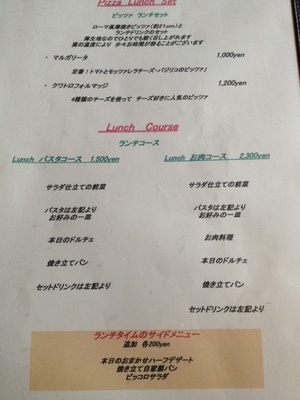 Pizza Lunch Set
ピッツァ ランチセット
ローマ風薄焼きピッツァ(約21cm)と
ランチドリンクのセット
薄生地なのでひとりでも軽く召し上がれます
窯の温度により 少々お時間が掛ることがございます
・ マルガリータ 1,000yen
定番!トマトとモッツァレラチーズ・バジリコのピッツァ♪
・ クワトロフォルマッジ 1,200yen
4種類のチーズを使って チーズ好きに人気のピッツァ
Lunch Course
ランチコース
Lunch パスタコース 1,500yen
サラダ仕立ての前菜
パスタは左記より
お好みの一皿
本日のドルチェ
焼き立てパン
セットドリンクは左記より
Lunch お肉コース 2,300yen
サラダ仕立ての前菜
パスタは左記より
お好みの一皿
お肉料理
本日のドルチェ
焼き立てパン
セットドリンクは左記より
ランチタイムのサイドメニュー
追加 各200yen
本日のおまかせハーフデザート
焼き立て自家製パン
ピッコロサラダ